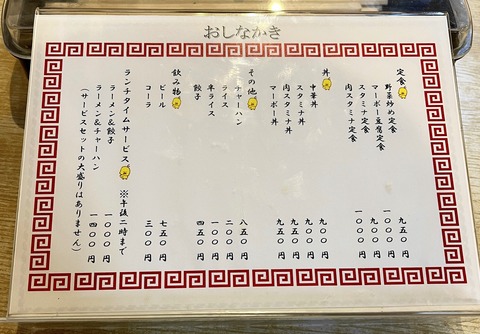 おしながき
定食
野菜炒め定食 九五〇円
マーボー豆腐定食
スタミナ定食 九〇〇円
肉スタミナ定食 一〇〇〇円
丼
中華丼 九〇〇円
スタミナ丼 九〇〇円
肉スタミナ丼 九五〇円
マーボー丼 九五〇円
その他
チャーハン 八五〇円
ライス 二〇〇円
半ライス 一〇〇円
餃子 四五〇円
飲み物
ビール 七五〇円
コーラ 三〇〇円
ランチタイムサービス ※午後二時まで
ラーメン&餃子 一〇〇〇円
ラーメン&チャーハン 一四〇〇円
(サービスセットの大盛りはありません)